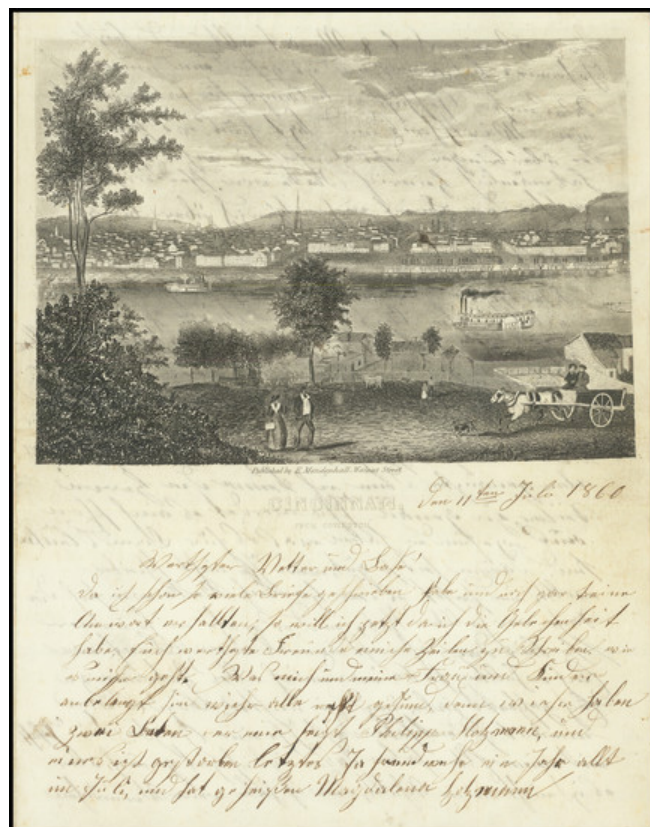 Published by E. Mendenhall, Walnut Street
Den 11ten Juli 1860
Werthster Vetter und Base!
Da ich schon so viele Briefe geschrieben habe und noch gar keine
Antwort erhallten, so will ich jetzt die Gelegenheit
haben Euch werthgste Freunde einige Zeilen zu Schreiben wie
es geht. Was mich und meine Frau und Kinder
anbelangt sin wiehr alle gesund, den wiehr haben
zwei der eine heist Philipp Holzmann, und
eins ist gestorben letztes Jahr ein Jahr allt
im Juli, und hat geheisen Magdalena Holzmann